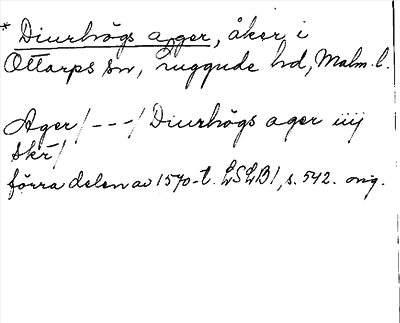 * Diurhögs ager, åker i
Ottarps sn, Ruggude hd, Malm. l.
Ager /---/ Diurhögs ager iiij
skr /
förra delen av 1570-t. LSLB1, s. 542. orig.